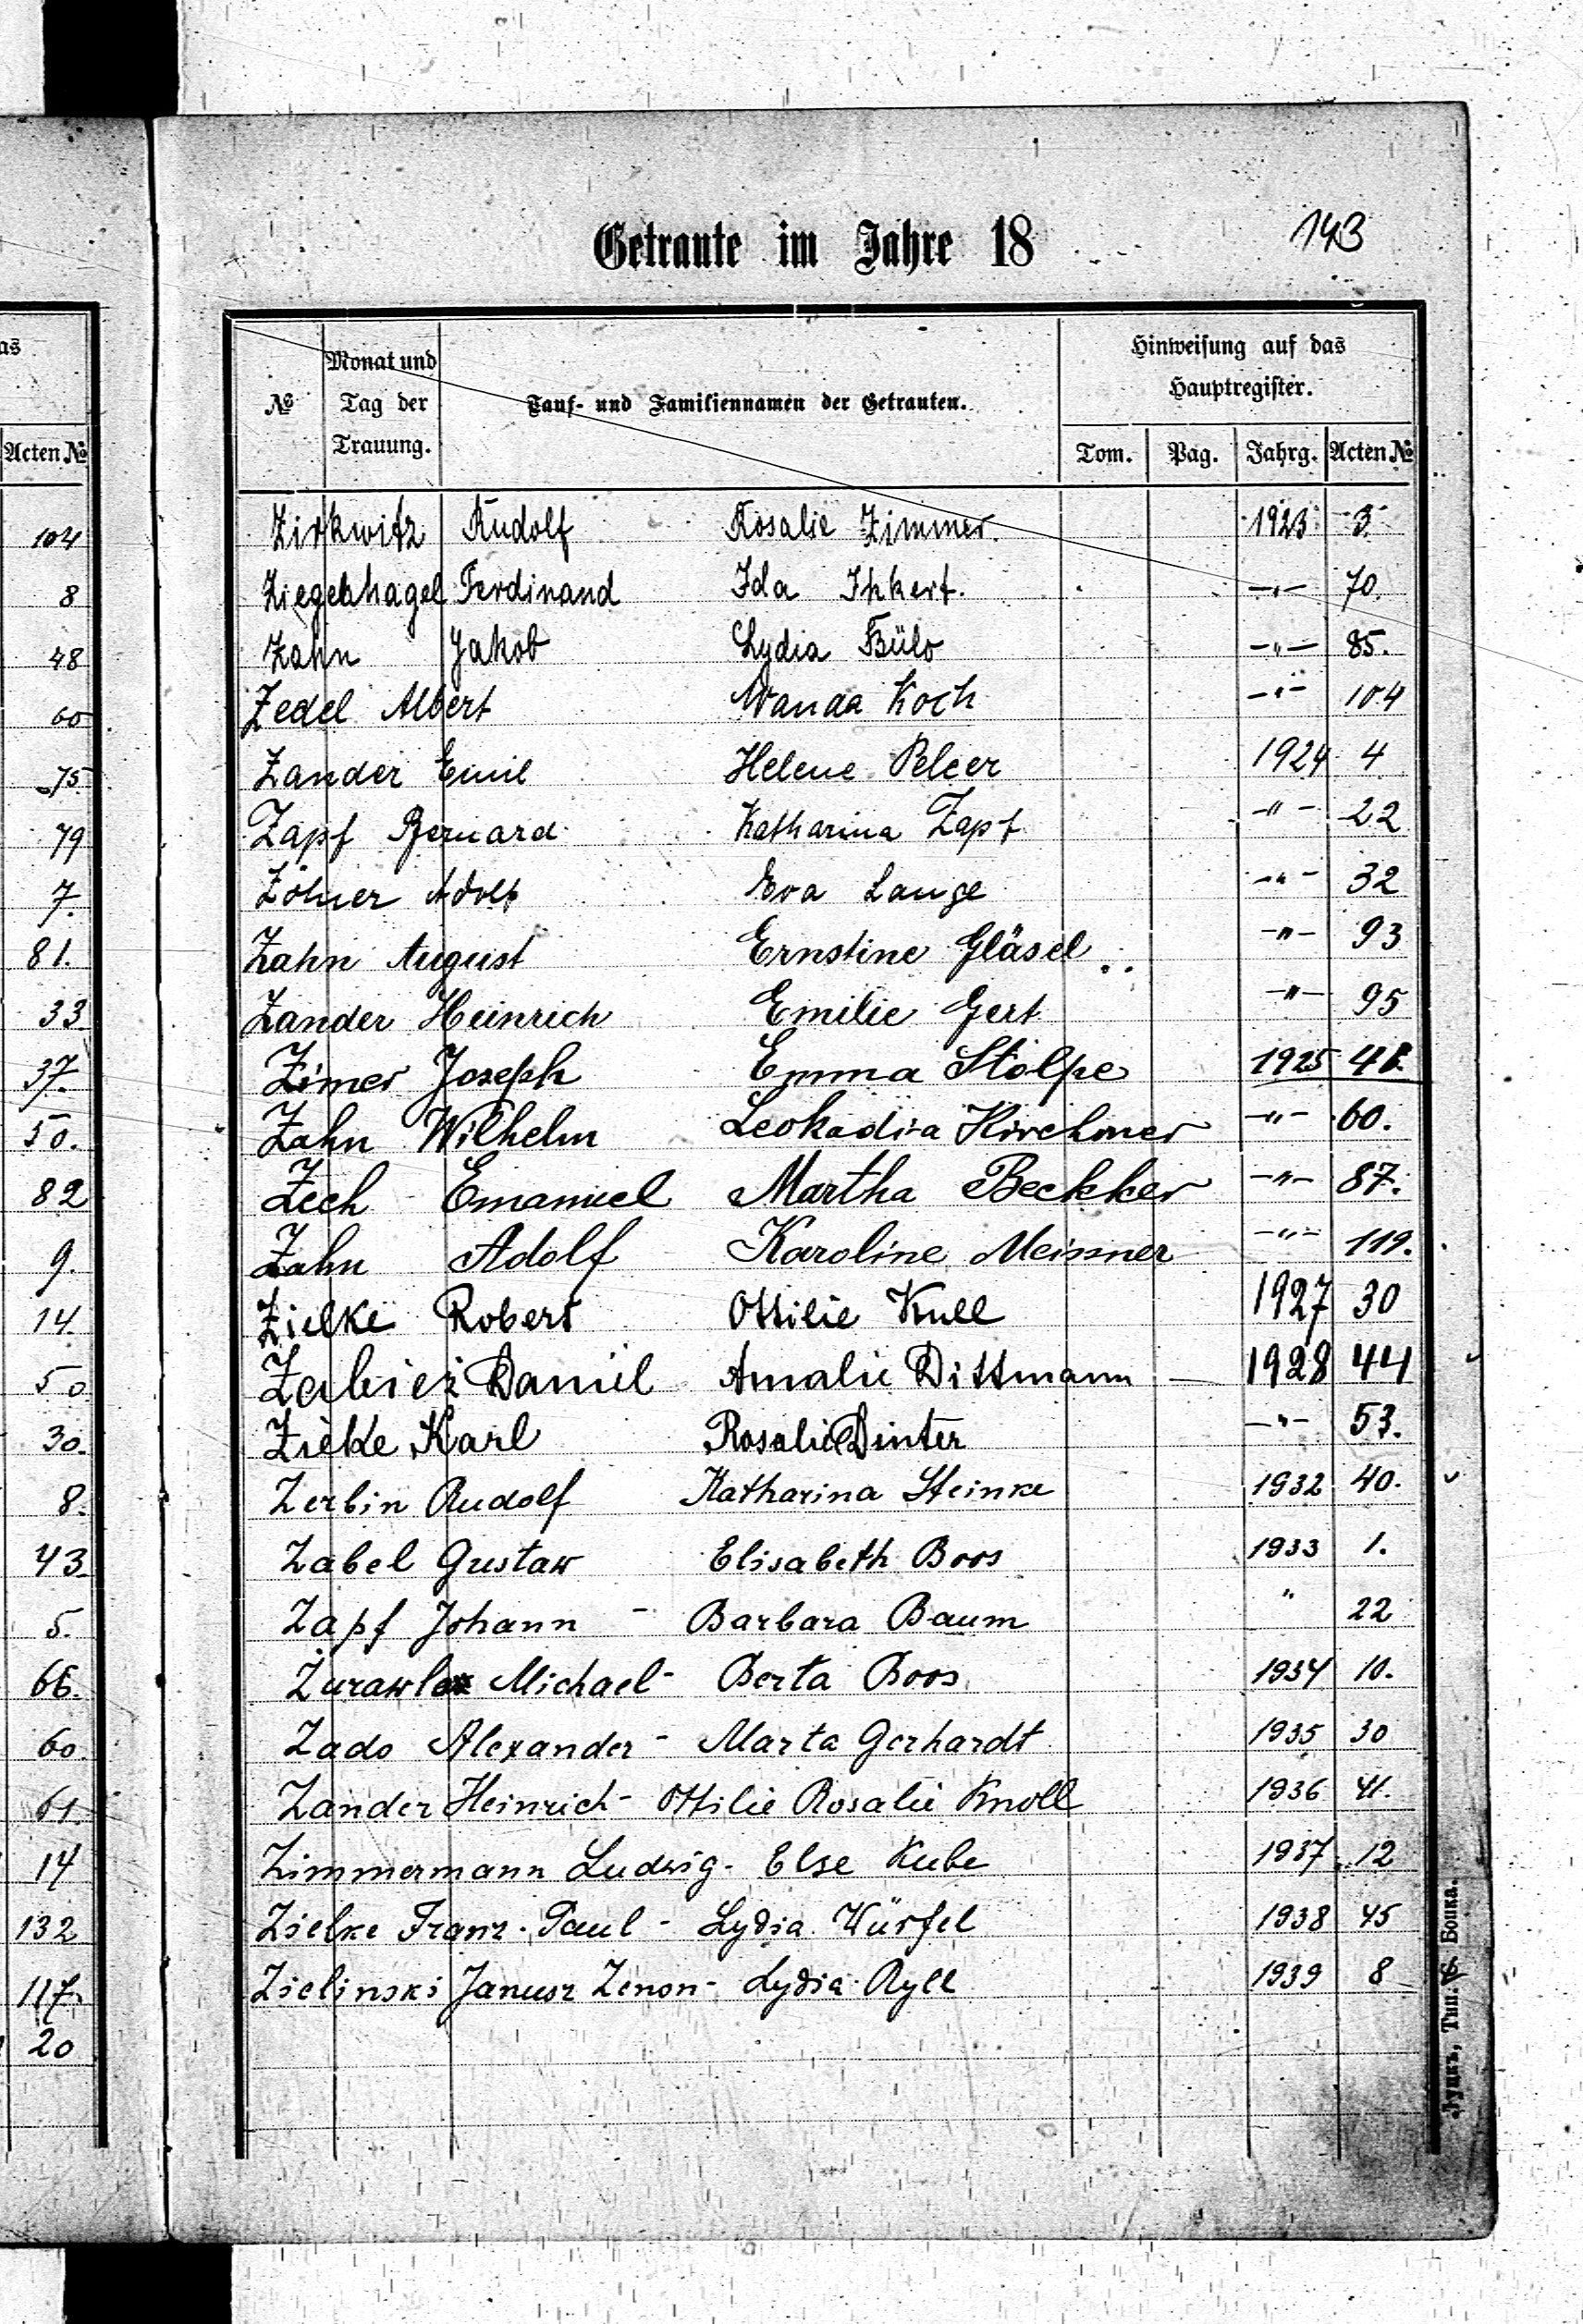 as
Acten №
104
8
48
60
75
79
7.
81.
33
37.
50.
82
9.
14.
50
30.
8.
43.
5.
66.
60.
61.
14
132
117.
20
Getraute im Jahre 18
143
№
Monat und Tag der Trauung.
Tauf- und Familiennamen der Getrauten.
Hinweisung auf das Hauptregister.
Tom. Pag. Jahrg. Acten №
Zirkwitz Rudolf Rosalie Zimmer. 1923 3.
Ziegenhagel Ferdinand Ida -"- 70.
Zahn Jakob Lydia Bülo -"- 85.
Zedel Albert Wanda Koch -"- 104
Zander Emil Helene Pelcer 1924 4
Zapf Bernard Katharina Zapf -"- 22
Zöhner Adolf Eva Lange -"- 32
Zahn August Ernstine Gläsel -"- 93
Zander Heinrich Emilie Gert -"- 95
Zimer Joseph Emma Stolpe 1925
Zahn Wilhelm Leokadia Kirchner -"- 60.
Zech Emanuel Martha Beckker -"- 87.
Zahn Adolf Karoline Meissner -"- 119.
Zielke Robert Ottilie Kull 1927 30
Daniel Amalie Dittmann 1928 44
Karl Rosalie Dinter -"- 53.
Zerbin Rudolf Katharina Steinke 1932 40.
Zabel Gustaw Elisabeth Boos 1933 1.
Zapf Johann - Barbara Baum " 22
Michael - Berta Boos 1934 10.
Zado Alexander - Marta Gerhardt 1935 30
Zander Heinrich - Ottilie Rosalie Knoll 1936 41.
Zimmermann Ludwig - Else Kube 1937 12
Zielke Franz-Paul - Lydia Würfel 1938 45
Zielinski Janusz Zenon - Lydia Ryll 1939 8
Луцкъ, Тип. Бойка.